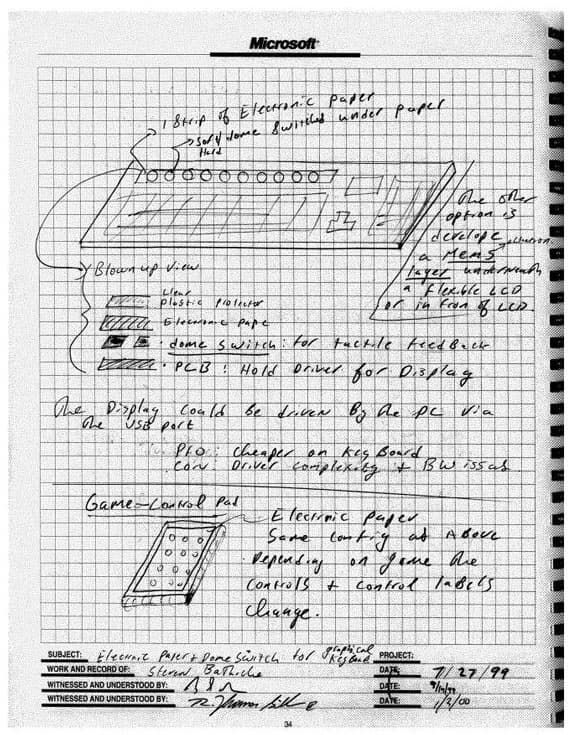 Microsoft
1 Strip of Electronic paper
dome Switches under paper
Hard
The other
option is
develope
a MEMS
layer underneath
a flexible LCD
or in fron of LCD.
Blown up View
Clear
plastic protector
Electronic Pape
• dome switch: for tactile feedBack
• PCB: Hold Driver for Display
The Display could be driven By the PC via
the USB port
Pro: Cheaper on KeyBoard
Con: Driver complexity + BW issues
Game-Control Pad
Electronic Paper
Same config as Above
Depending on game the
controls + control labels
change.
SUBJECT: Electronic Paper + Dome Switch for graphical KeyBoard PROJECT:
WORK AND RECORD OF: Steven Bathiche DATE: 7/27/99
WITNESSED AND UNDERSTOOD BY: DATE:
WITNESSED AND UNDERSTOOD BY: DATE: 1/2/00
34